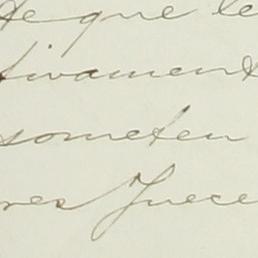 de que le
tivament
someten
res Juece